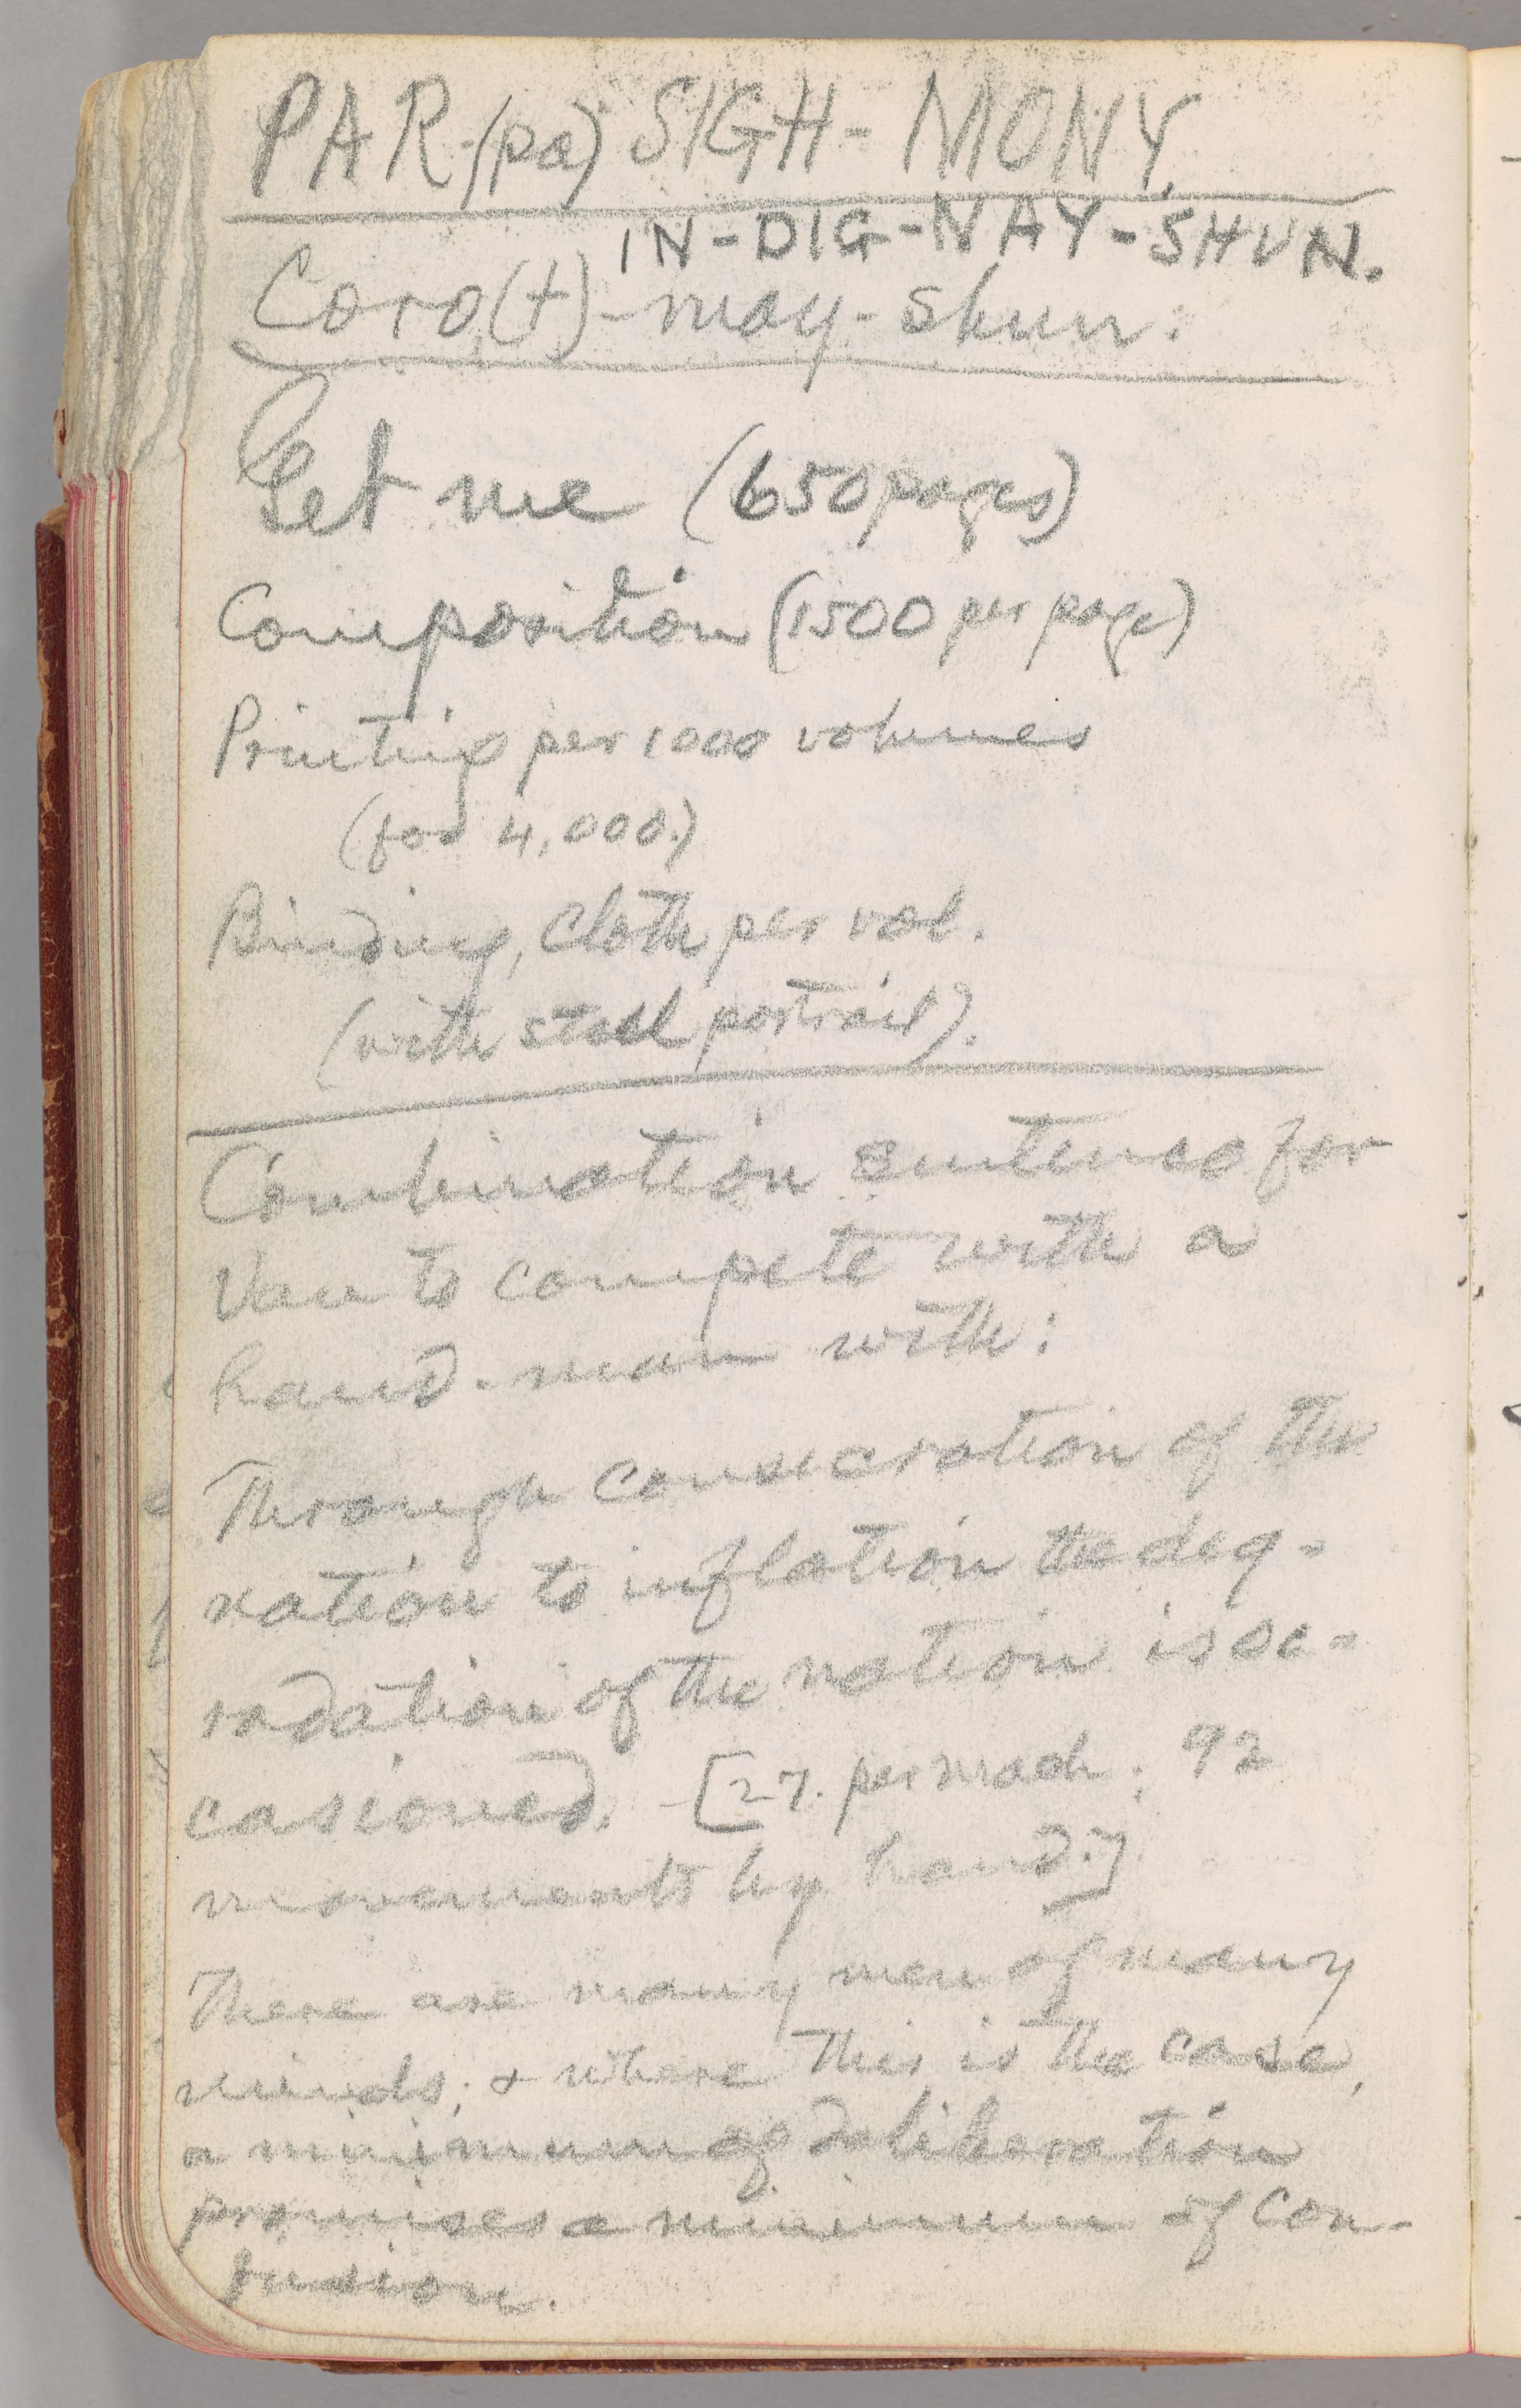 PAR-(pa) SIGH-MONY.
IN-DIG-NAY-SHUN.
Coro(t)-nay-shun:
Set me (650 pages)
Composition (1500 per page)
Printing per 1000 volumes
(for 4,000.)
Binding, cloth per vol.
(with steel portrait).
Combination sentence for
Van to compete with a
hand-man with:
Through consecration of the
nation to inflation the deg-
radation of the nation is oc-
casioned. [27. per mach; 92
movements by hand.]
There are many men of many
minds; & where this is the case,
a minimum of deliberation
promises a minimum of con-
fusion.